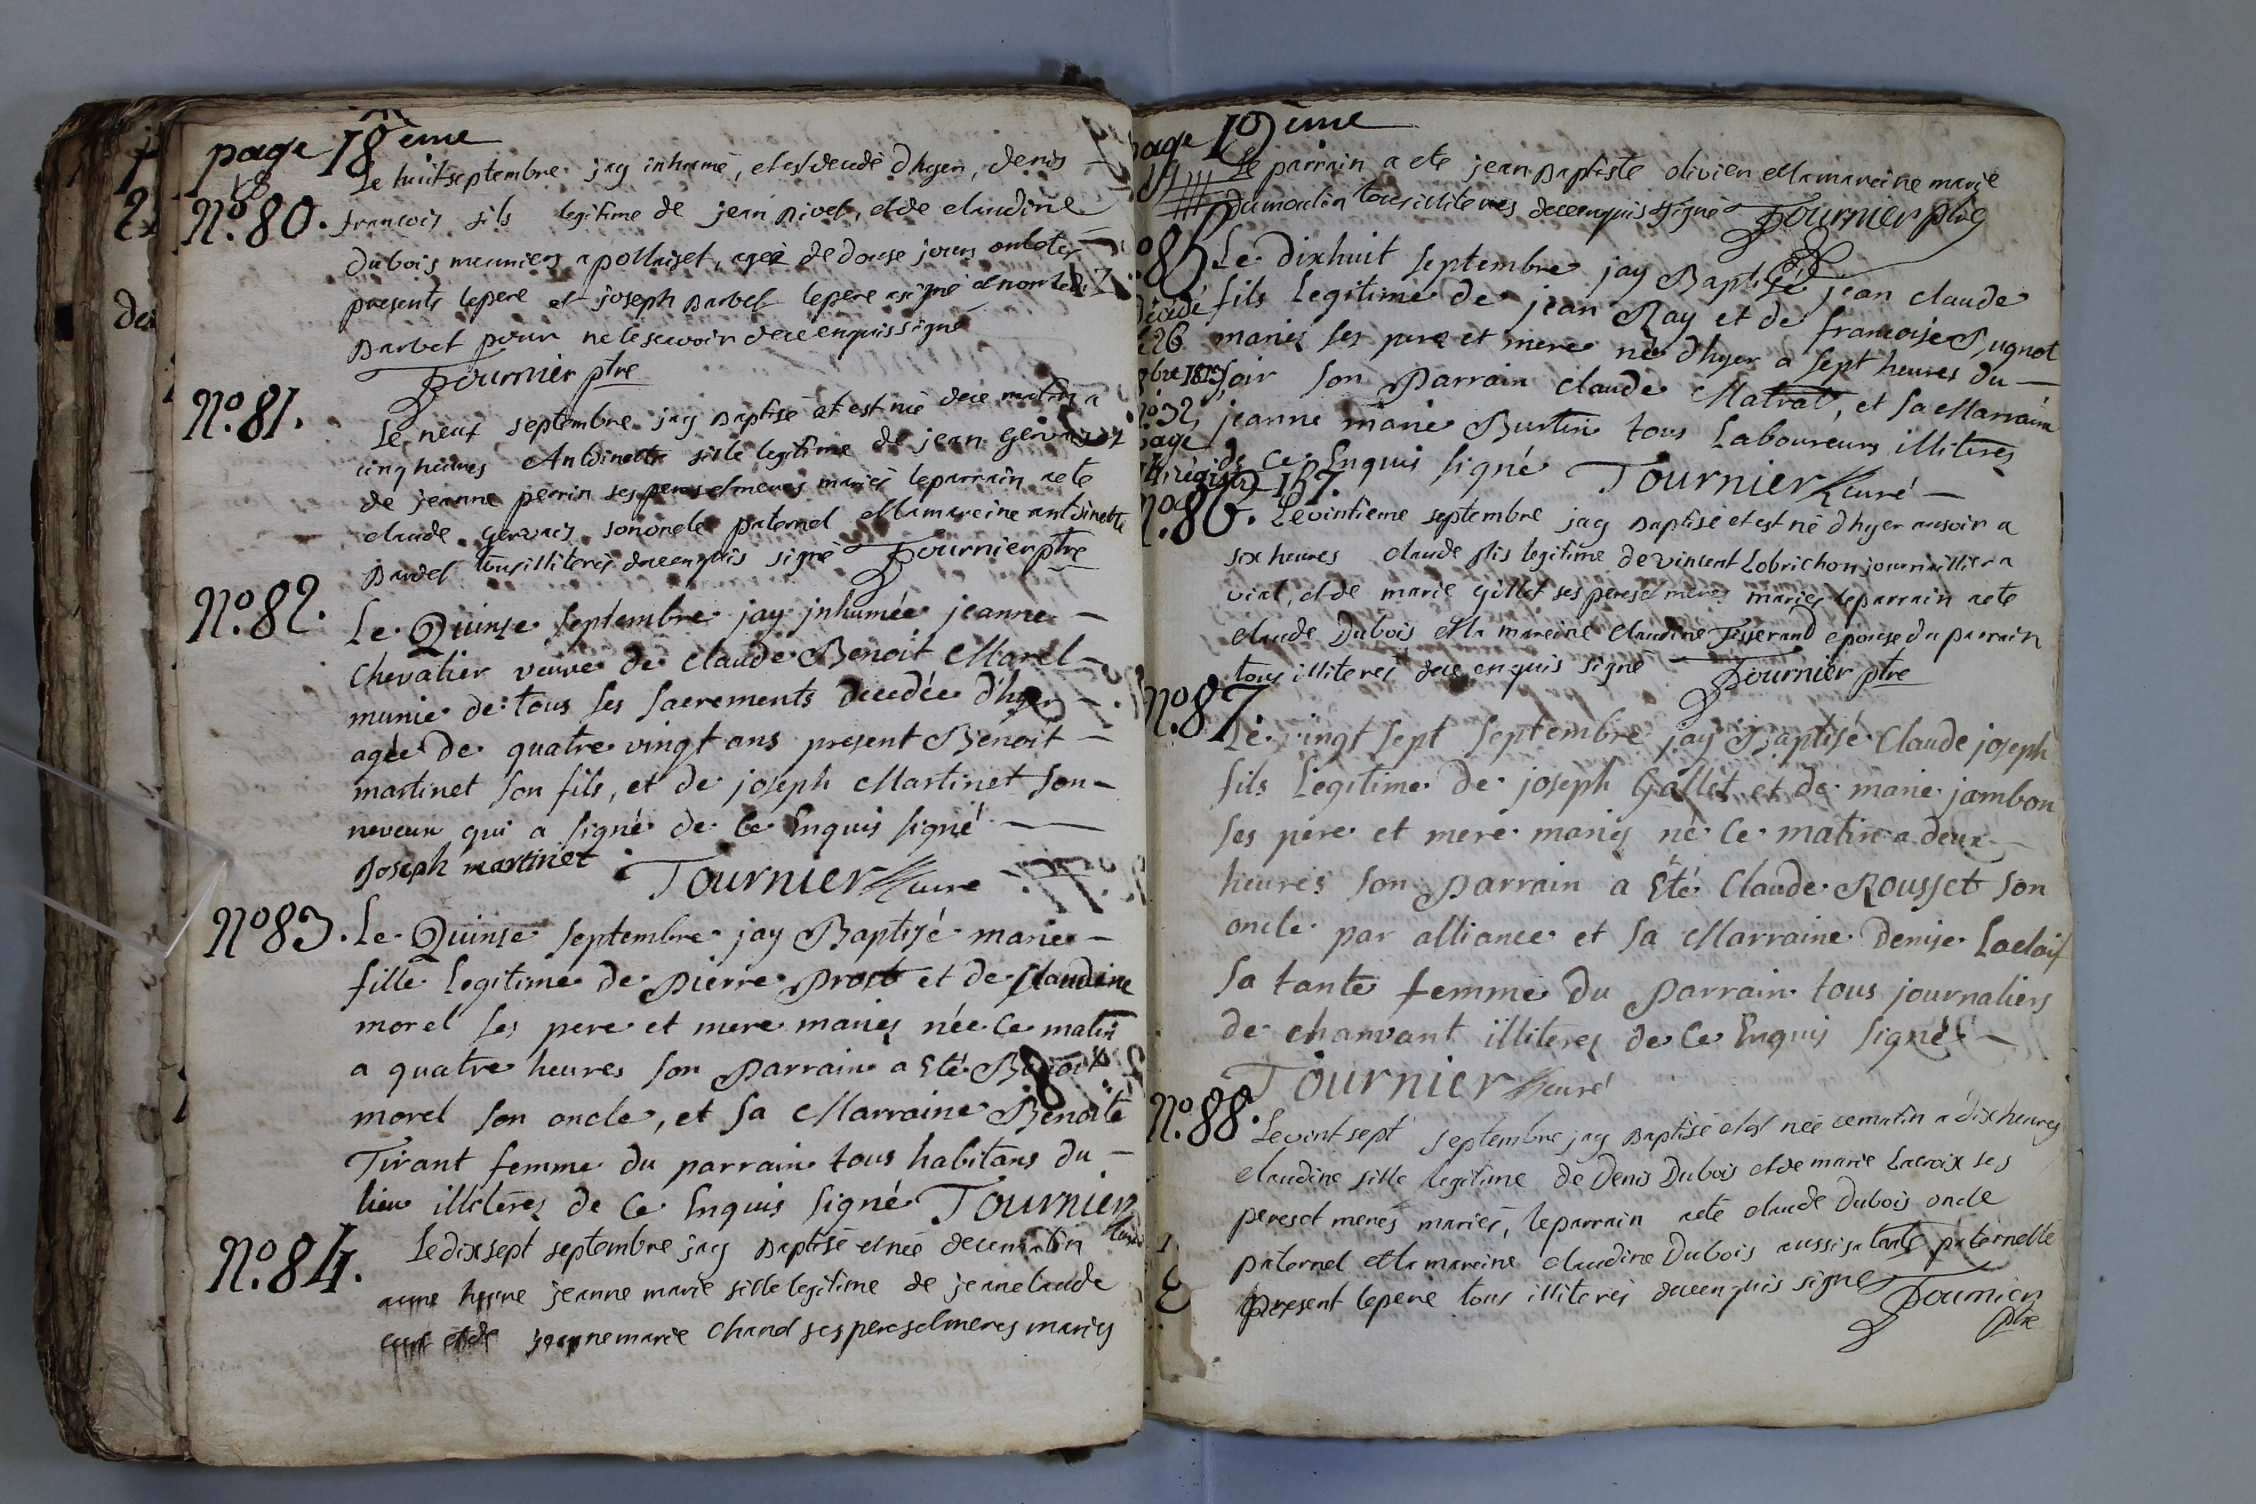 page 18eme
Le huit septembre jay inhumé, et est decedé d'hyer, denis
No. 80. francois fils legitime de jean Rivet, et de claudine
Dubois meuniers a pollaiset, agee de douse jours ont ete
presents le pere et joseph Barbet le pere a signé et non ledit
Barbet pour ne le scavoir de ce enquis signé
Tournier ptre
No. 81. Le neuf septembre jay Baptisé et est née dece matin a
cinq heures Antoinette fille legitime de jean Gervais et
de jeanne perrin ses peres et meres mariés le parrain a ete
claude Gervais son oncle paternel et la mareine antoinette
Bardet tous illiterés de ce enquis signé Tournier ptre
No. 82. Le Quinse septembre jay jnhumée jeanne
Chevalier veuve de Claude Benoit Marel
munie de tous ses sacrements decedée d'hyer
agée de quatre vingt ans present Benoit
martinet son fils, et de joseph Martinet son
neveux qui a signé de ce Enquis signé
Joseph martinet Tournier curé
No 83. Le Quinse septembre jay Baptisé marie
fille legitime de pierre prost et de Claudine
morel ses pere et mere maries née ce matin
a quatre heures son parrain a Eté Benoit
morel son oncle, et sa Marraine Benoite
Tirant femme du parrain tous habitans du
lieu illiteres de ce Enquis signé Tournier
curé
No. 84. Le dix sept septembre jay Baptisé et née de ce matin
a une heure jeanne marie fille legitime de jean claude
et de jeanne marie Chanel ses peres et meres maries
page 19eme
Le parrain a ete jean Baptiste olivier et la mareine marie
Dumoulin tous illiteres de ce enquis signé Tournier ptre
85. Le dixhuit septembre jay Baptisé jean claude
décédé fils legitime de jean Ray et de francoise Sugnot
26 maries ses pere et mere né d'hyer a sept heures du
9bre 1815 soir son parrain claude Matrat, et sa Marraine
jeanne marie Burtin tous Laboureurs illiteres
page
de ce Enquis signé Tournier curé
registre 157.
No. 86. Le vintieme septembre jay Baptisé et est né d'hyer au soir a
six heures claude fils legitime de vincent Lobrichon journaillier a
viat, et de marie Gillet ses peres et meres maries le parrain a ete
claude Dubois et la mareine claudine Tisserand epouse du parrain
tous illiterés de ce enquis signé Tournier ptre
No. 87. Le vingt sept septembre jay Baptisé Claude joseph
fils legitime de joseph Gallet et de marie jambon
ses pere et mere maries né ce matin a deux
heures son parrain a Eté Claude Rousset son
oncle par alliance et sa Marraine Denise
sa tante femme du parrain tous journaliers
de chanvant illiteres de ce Enquis signé
Tournier curé
No. 88. Le vint sept septembre jay Baptisé et est née ce matin a dix heures
claudine fille legitime de Denis Dubois et de marie Lacroix ses
peres et meres mariés, le parrain a ete claude Dubois oncle
paternel et la mareine claudine Dubois aussi sa tante paternelle
present le pere tous illiterés de ce enquis signe Tournier
ptre